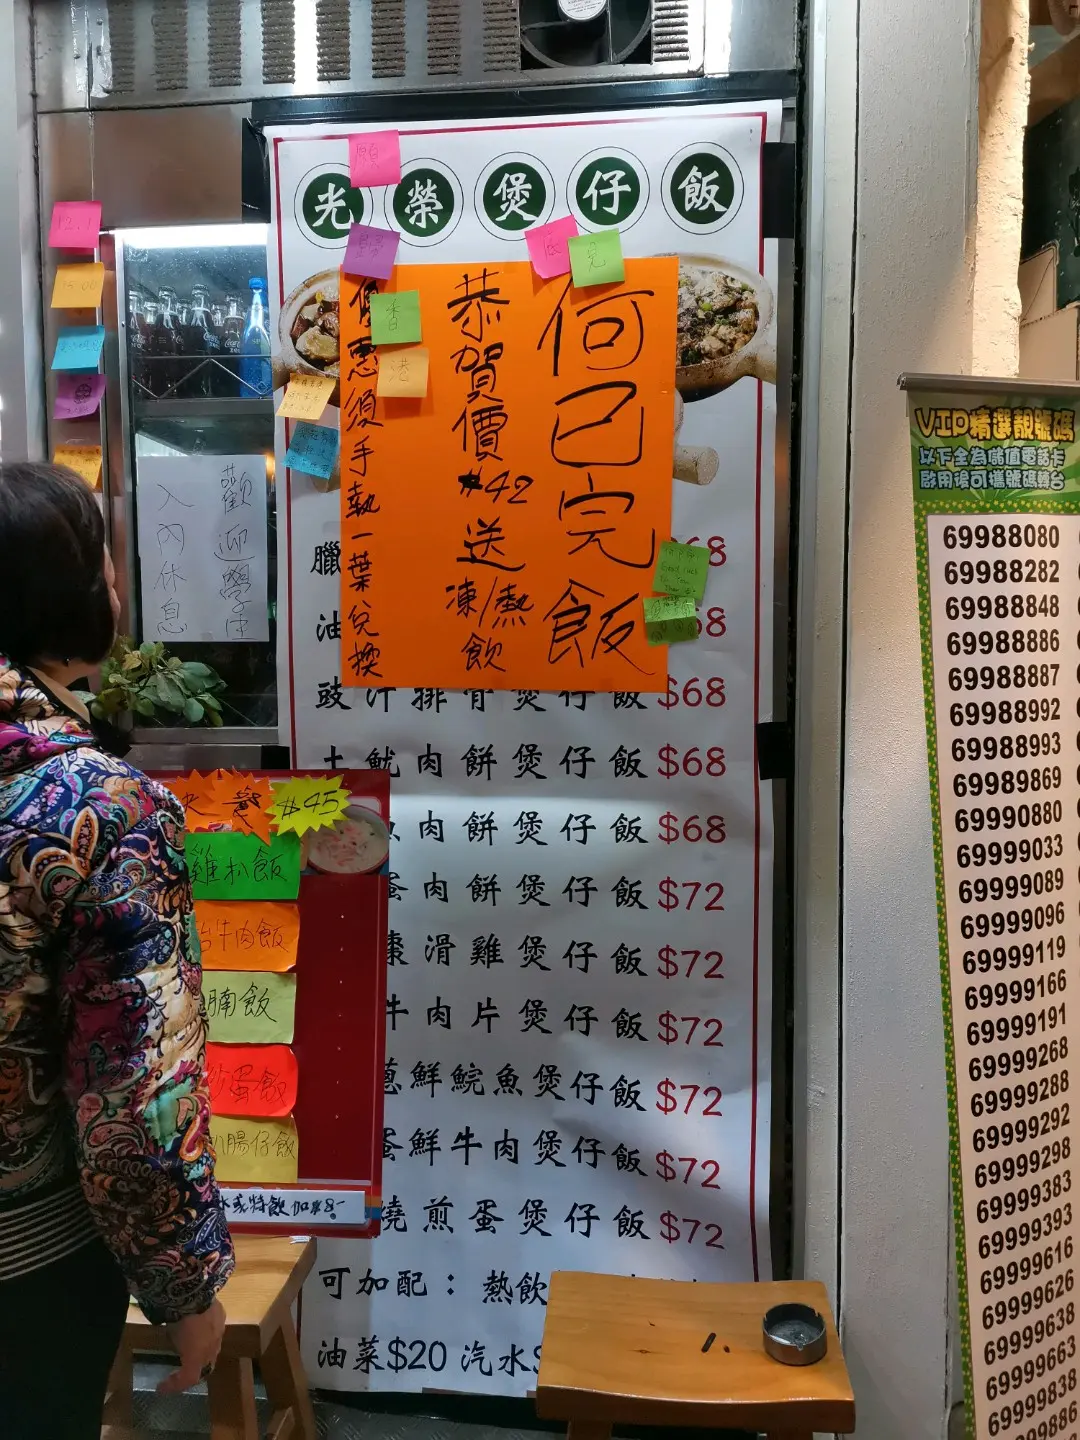 光榮煲仔飯
願
榮
香
港
何已完飯
恭賀價$42送凍/熱飲
優惠須手執一葉兌換
歡迎學生
入內休息
12.1
$68
$68
豉汁排骨煲仔飯$68
土魷肉餅煲仔飯$68
肉餅煲仔飯$68
蛋肉餅煲仔飯$72
滑雞煲仔飯$72
牛肉片煲仔飯$72
蔥鮮鯇魚煲仔飯$72
蛋鮮牛肉煲仔飯$72
燒煎蛋煲仔飯$72
可加配：熱飲
油菜$20 汽水
$45
雞扒飯
牛肉飯
腩飯
炒蛋飯
腸仔飯
或特飲加$8-
VIP精選靚號碼
以下全為儲值電話卡
啟用後可攜號碼轉台
69988080
69988282
69988848
69988886
69988887
69988992
69988993
69989869
69990880
69999033
69999089
69999096
69999119
69999166
69999191
69999268
69999288
69999292
69999298
69999383
69999393
69999616
69999626
69999638
69999663
69999838